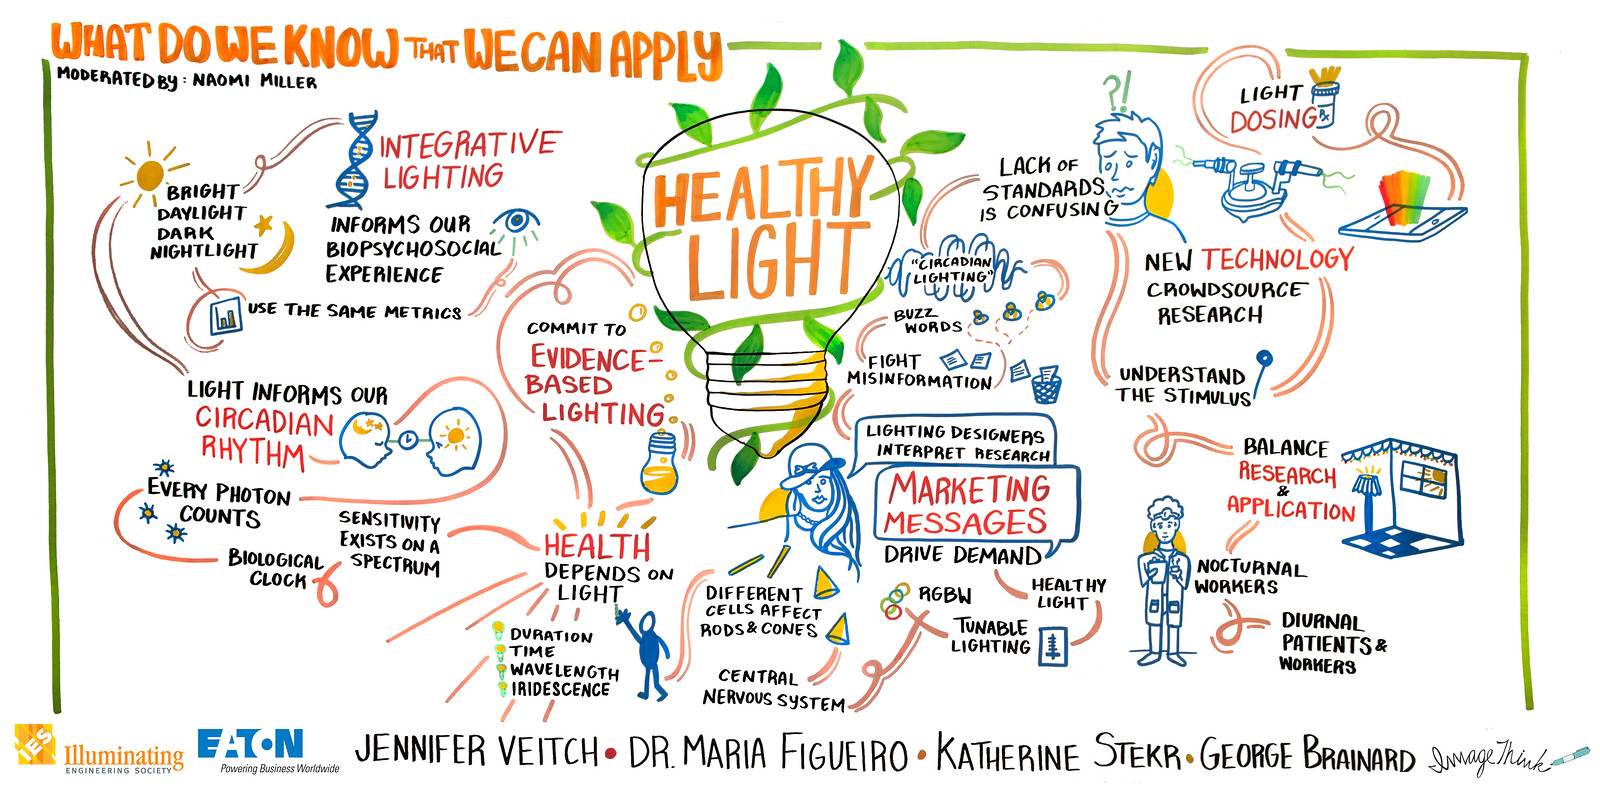 WHAT DO WE KNOW THAT WE CAN APPLY
MODERATED BY: NAOMI MILLER
HEALTHY
LIGHT
INTEGRATIVE
LIGHTING
INFORMS OUR
BIOPSYCHOSOCIAL
EXPERIENCE
BRIGHT
DAYLIGHT
DARK
NIGHTLIGHT
USE THE SAME METRICS
LIGHT INFORMS OUR
CIRCADIAN
RHYTHM
EVERY PHOTON
COUNTS
BIOLOGICAL
CLOCK
SENSITIVITY
EXISTS ON A
SPECTRUM
COMMIT TO
EVIDENCE-
BASED
LIGHTING
HEALTH
DEPENDS ON
LIGHT
DURATION
TIME
WAVELENGTH
IRIDESCENCE
DIFFERENT
CELLS AFFECT
RODS & CONES
CENTRAL
NERVOUS SYSTEM
LACK OF
STANDARDS
IS CONFUSING
?!
"CIRCADIAN
LIGHTING"
BUZZ
WORDS
FIGHT
MISINFORMATION
LIGHTING DESIGNERS
INTERPRET RESEARCH
MARKETING
MESSAGES
DRIVE DEMAND
HEALTHY
LIGHT
RGBW
TUNABLE
LIGHTING
LIGHT
DOSING
Rx
NEW TECHNOLOGY
CROWDSOURCE
RESEARCH
UNDERSTAND
THE STIMULUS
BALANCE
RESEARCH
&
APPLICATION
NOCTURNAL
WORKERS
DIURNAL
PATIENTS &
WORKERS
IES
Illuminating
ENGINEERING SOCIETY
EATON
Powering Business Worldwide
JENNIFER VEITCH • DR. MARIA FIGUEIRO • KATHERINE STEKR • GEORGE BRAINARD
ImageThink